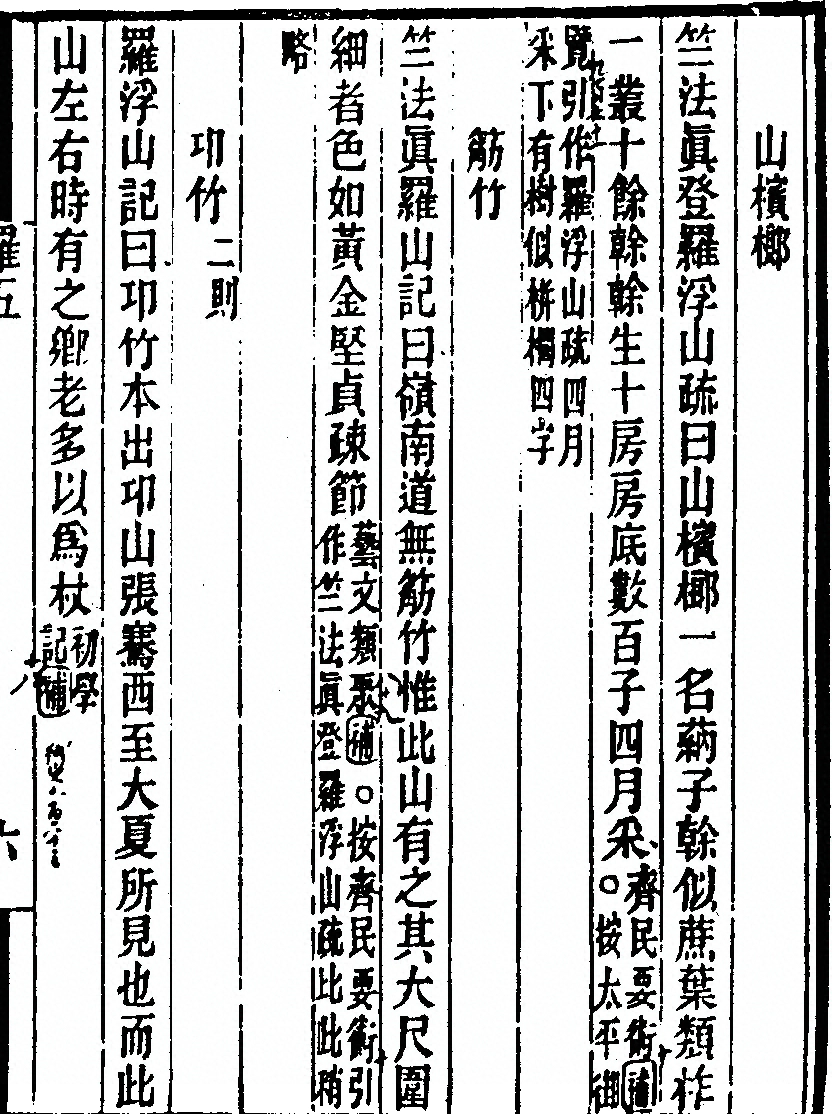 山檳榔
竺法眞登羅浮山疏曰山檳榔一名蒳子榦似蔗葉類柞
一叢十餘榦榦生十房房底數百子四月采齊民要術補
○按太平御
覽引作羅浮山疏四月
采下有樹似栟櫚四字
筋竹
竺法眞羅山記曰嶺南道無筋竹惟此山有之其大尺圍
細者色如黃金堅貞疎節藝文類聚補○按齊民要術引
作竺法眞登羅浮山疏比此稍
略
卭竹二則
羅浮山記曰卭竹本出卭山張騫西至大夏所見也而此
山左右時有之鄉老多以爲杖初學
記補
羅五
六